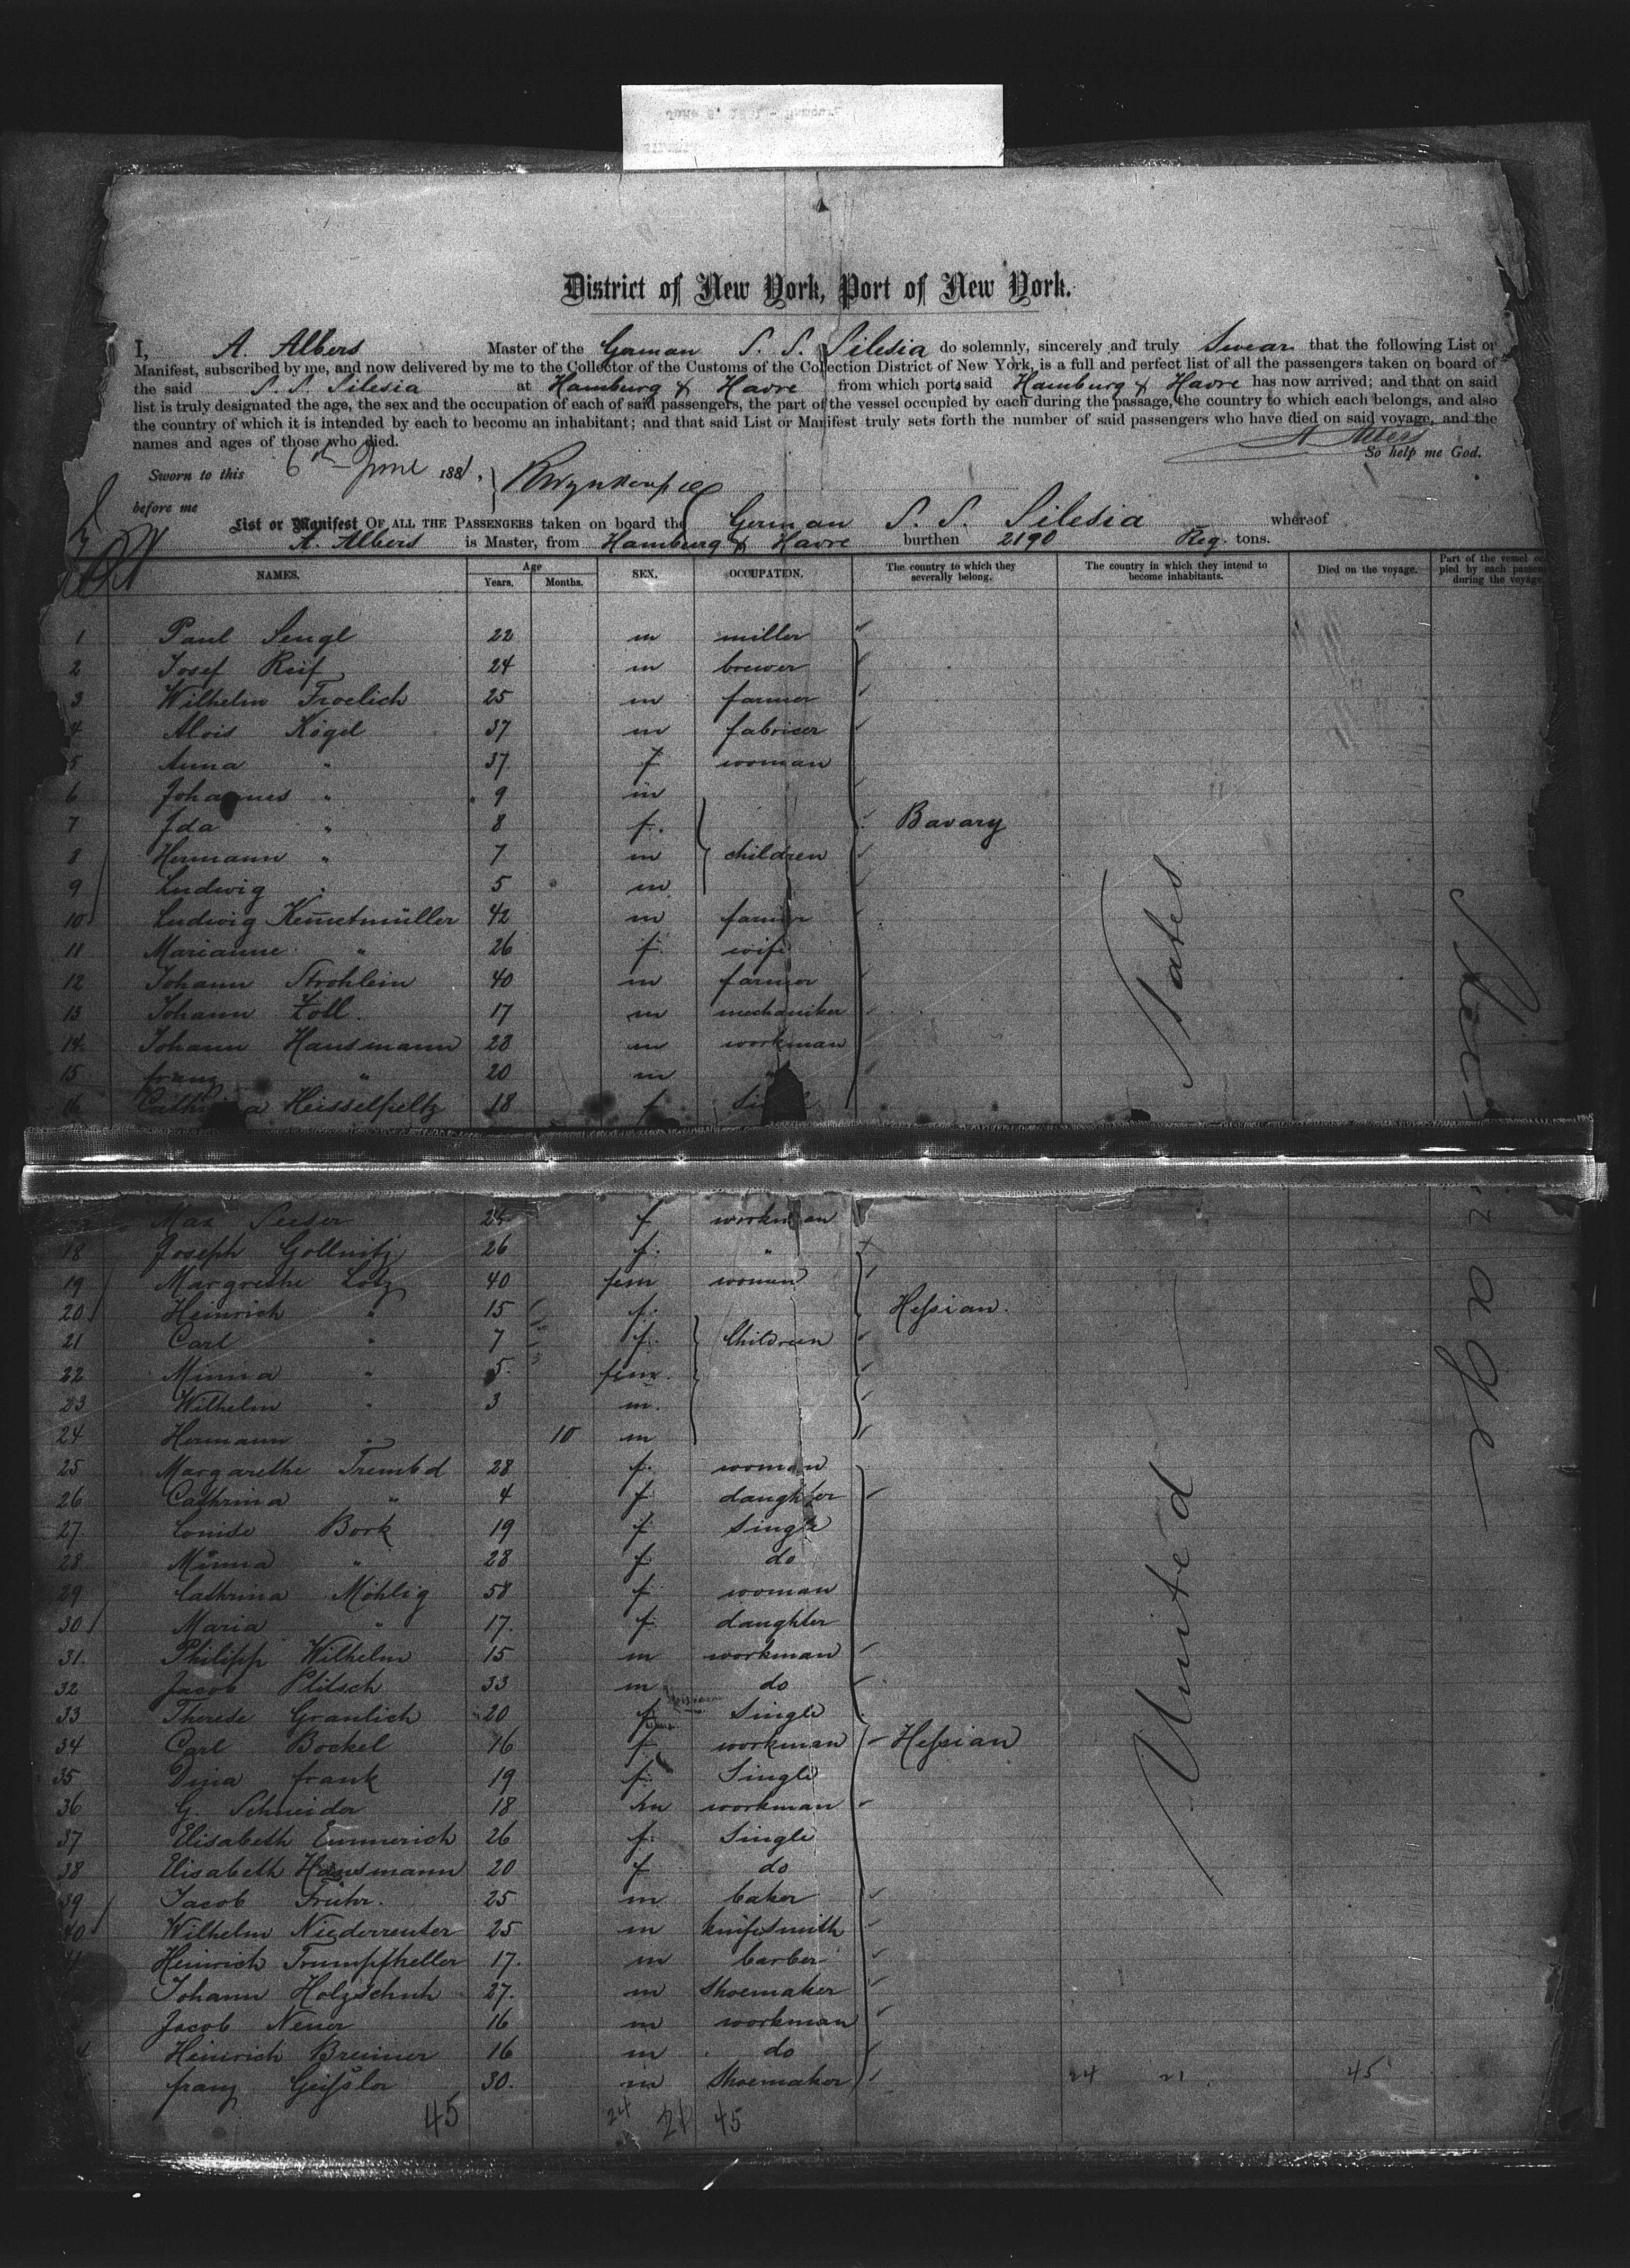 District of New York, Port of New York.
I, A. Albers Master of the German S. S. Silesia do solemnly, sincerely and truly Swear that the following List or
Manifest, subscribed by me, and now delivered by me to the Collector of the Customs of the Collection District of New York, is a full and perfect list of all the passengers taken on board of
the said S. S. Silesia at Hamburg & Havre from which ports said Hamburg & Havre has now arrived; and that on said
list is truly designated the age, the sex and the occupation of each of said passengers, the part of the vessel occupied by each during the passage, the country to which each belongs, and also
the country of which it is intended by each to become an inhabitant; and that said List or Manifest truly sets forth the number of said passengers who have died on said voyage, and the
names and ages of those who died. A Albers
So help me God.
Sworn to this 6th June 1881,
before me
List or Manifest OF ALL THE PASSENGERS taken on board the German S. S. Silesia whereof
A. Albers is Master, from Hamburg & Havre burthen 2190 Reg. tons.
NAMES. Age Years. Months. SEX. OCCUPATION. The country to which they severally belong. The country in which they intend to become inhabitants. Died on the voyage. Part of the vessel during the voyage.
1 Paul Sengl 22 m miller
2 Josef Reif 24 m brewer
3 Wilhelm Froelich 25 m farmer
4 Alois Kögel 37 m fabricer
5 Anna " 37. f woman
6 Johannes " 9 m
7 Ida " 8 f. Bavary
8 Hermann " 7 m children
9 Ludwig " 5 m
10 Ludwig 42 m farmer
11 Marianne " 26 f wife
12 Johann Strohlein 40 m farmer
13 Johann Zoll. 17 m mechaniker
14 Johann Hausmann 28 m workman
15 franz " 20 m "
16 Cathrina Heisselpeltz 18 f
Max Seeser 24 f workman
18 Joseph Gollnitz 26 f. "
19 Margrethe Lotz 40 fem woman
20 Heinrich " 15 f. Hessian.
21 Carl " 7 f. Children
22 Minna " 5. fem.
23 Wilhelm " 3 m.
24 Hermann " 10 m
25 Margarethe 28 f. woman
26 Cathrina " 4 f daughter
27. Louise Bork 19 f Single
28 Minna " 28 f do
29 Cathrina Möhlig 58 f woman
30 Maria " 17. f daughter
31. Philipp Wilhelm 15 m workman
32 Jacob Plitsch 33 m do
33 Therese Graulich 20 f Single
34 Carl Bockel 16 f workman Hessian
35 Dina frank 19 f. Single
36 G. Schneider 18 m workman
37 Elisabeth Emmerich 26 f. Single
38 Elisabeth Hausmann 20 f do
39 Jacob Frühr. 25 m baker
40 Wilhelm Niederreuter 25 m knifesmith
Heinrich Trumpfheller 17. m barber
Johann Holzschuh 27. m Shoemaker
Jacob Neuer 16 m workman
Heinrich Breiner 16 m do
franz Geissler 30. m Shoemaker 24 21 45
45 24 21 45
United States
Steerage